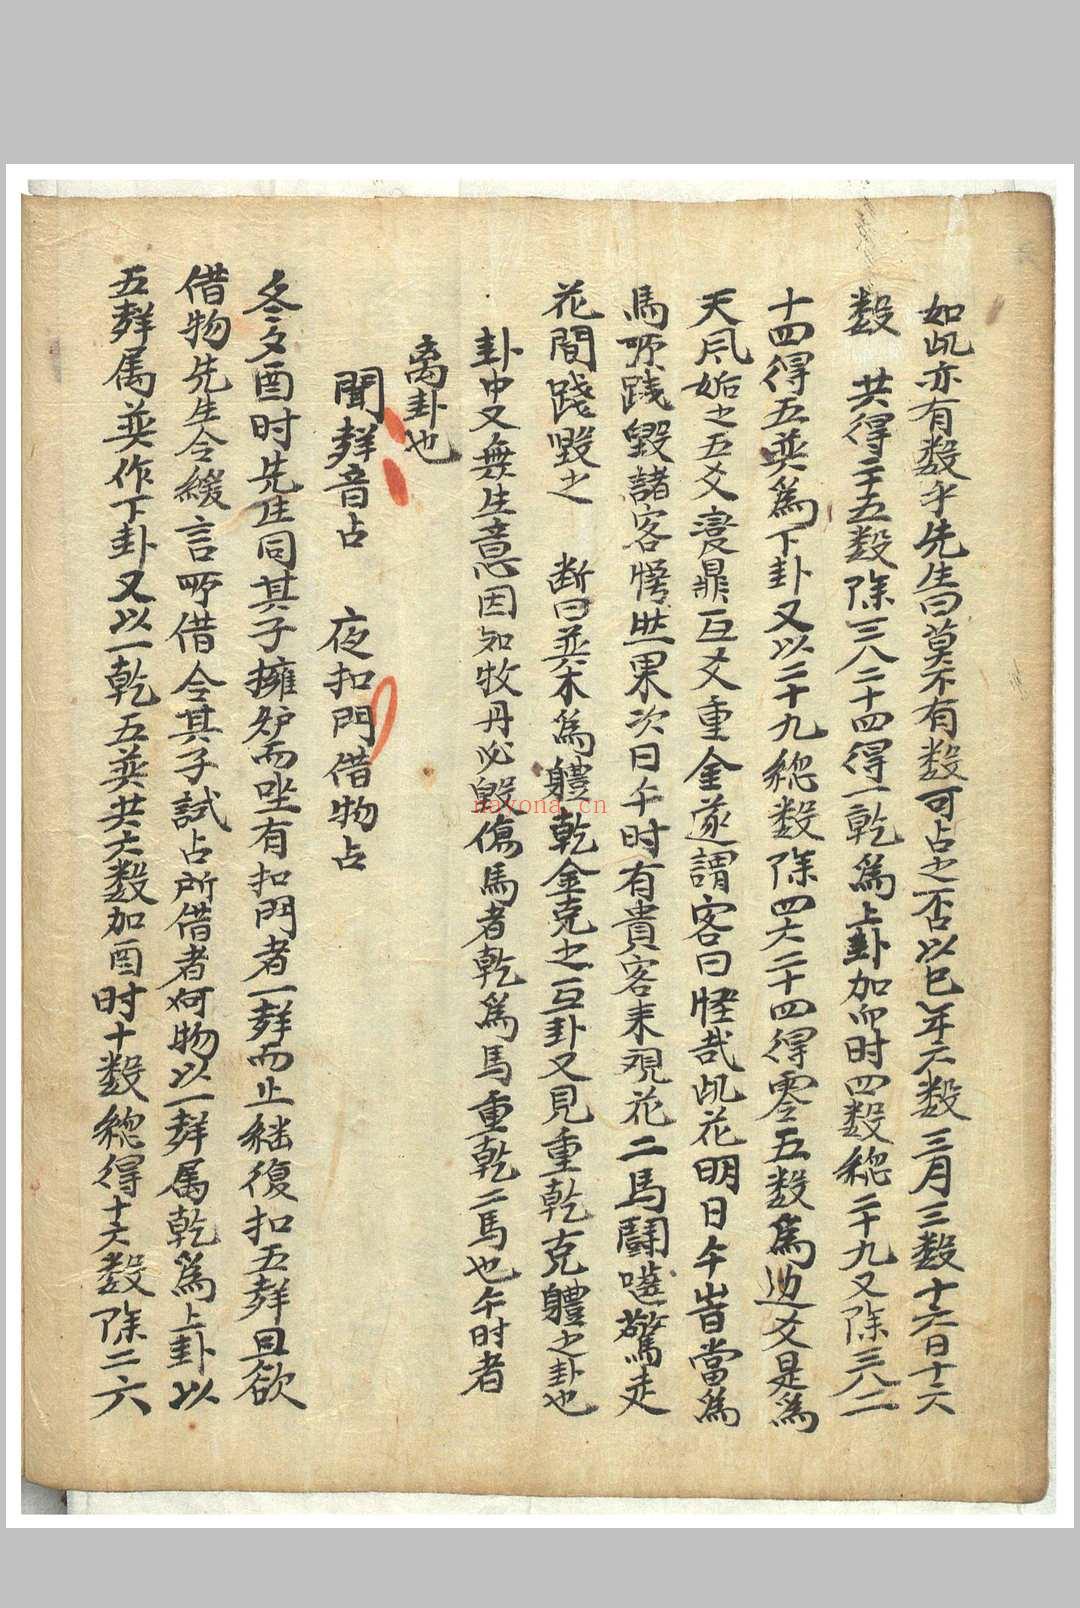 如此亦有数乎先生曰莫不有数可占之否以巳年六数三月三数十六日十六
数　共得二十五数除三八二十四得一乾為上卦加卯时四数緫二十九又除三八二
十四得五巽為下卦又以二十九緫数除四六二十四得零五数為边爻是為
天风姤之五爻变鼎互爻重金遂謂客曰怪哉此花明日午旹當為
馬所践毁諸客愕然果次日午时有貴客来观花二馬鬪嚙驚走
花間踐毁之　断曰巽木為軆乾金克之互卦又見重乾克軆之卦也
卦中又無生意因知牧丹必毁傷馬者乾為馬重乾二馬也午时者
离卦也
聞聲音占　夜扣門借物占
冬夕酉时先生同其子擁炉而坐有扣門者一聲而止継復扣五聲且欲
借物先生令緩言所借令其子試占所借者何物以一聲属乾為上卦以
五聲属巽作下卦又以一乾五巽共六数加酉时十数緫得十六数除二六
nayona.cn